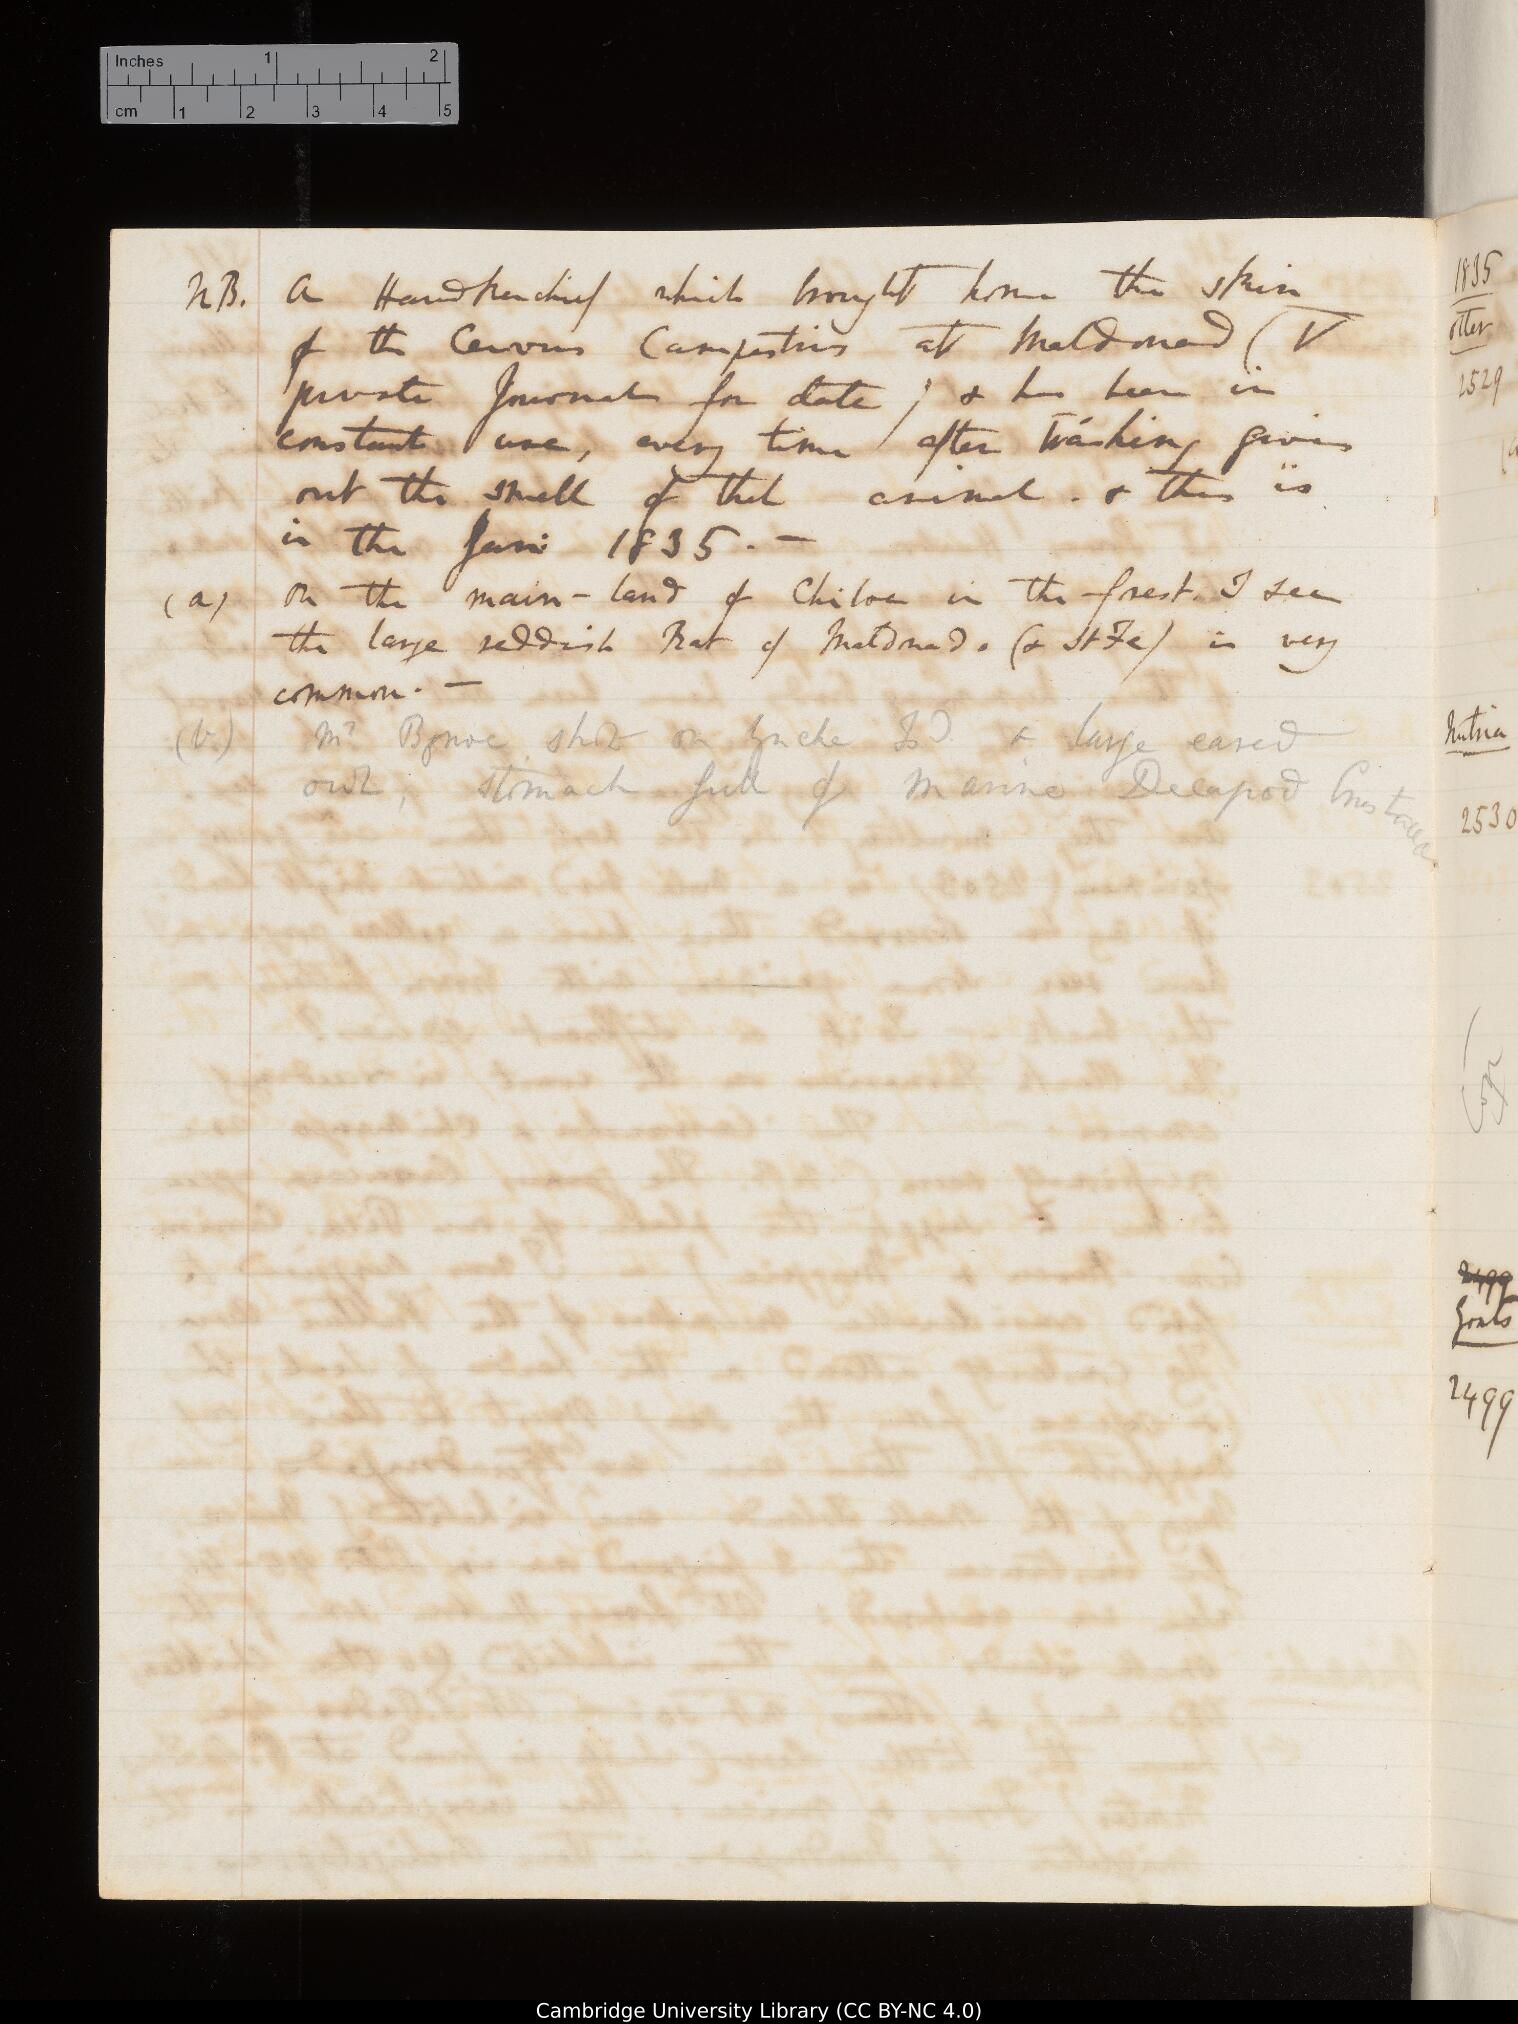 Inches 1 2
cm 1 2 3 4 5
NB. A Handkerchief which brought home the skin
of the Cervus Campestris at Maldonado (V
private Journal for date) & has been in
constant use, every time after washing gives
out the smell of that animal. & this is
in the Jan: 1835. —
(a) On the main-land of Chiloe in the forest. I see
the large reddish Rat of Maldonado. (& St Fe) is very
common. —
(b) Mr Bynoe shot on Isd. a large eared
owl, stomach full of marine Decapod Crustaceae.
1835
otter
2529
(a
Nutria
2530
2499
Goats
2499
Cambridge University Library (CC BY-NC 4.0)